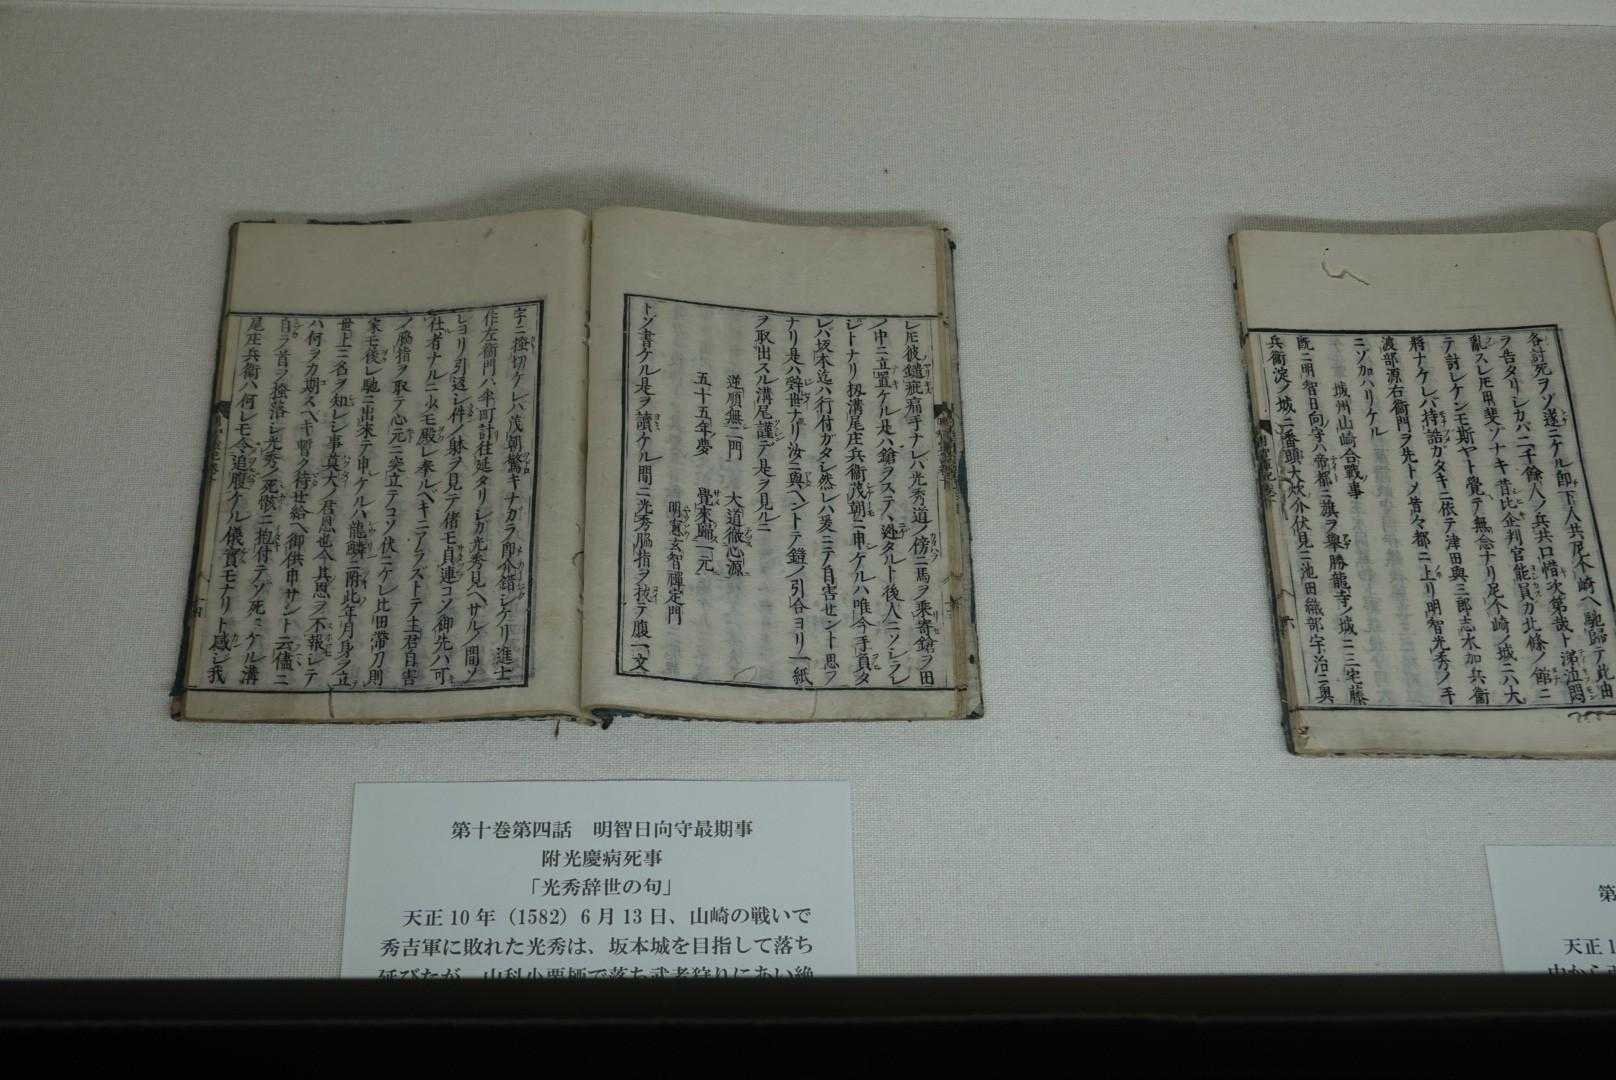 レ𪜈彼鑓疵痛手ナレハ光秀道ノ傍ニ馬ヲ乗寄鎗ヲ田
ノ中ニ立置ケル是ハ鎗ヲステヽ迯タルト後人ニソシラレ
シトナリ扨溝尾庄兵衞茂朝ニ申ケルハ唯今手負タ
レバ坂本迄ハ行付ガタシ然レハ爰ニテ自害セント思フ
ナリ是ハ辭世ナリ汝ニ與ヘントテ鎧ノ引合ヨリ一紙
ヲ取出スル溝尾謹テ是ヲ見ルニ
逆順無二門 大道徹心源
五十五年夢 覺來歸一元
明窓玄智禪定門
トゾ書ケル是ヲ讀ケル間ニ光秀脇指ヲ抜テ腹一文
字ニ搔切ケレハ茂朝驚キナカラ即介錯シケリ進士
作左衞門ハ半町計往延タリシガ光秀見ヘサルノ間ソ
レヨリ引返シ件ノ躰ヲ見テ偖モ貞連コソ御先ハ可
仕者ナルニ少モ殿レ奉ルヘキニアラズトテ主君自害
ノ脇指ヲ取テ心元ニ突立テコソ伏ニケレ比田帯刀則
家モ後レ馳ニ出来テ申ケルハ龍鱗ニ附此年月身ヲ立
世上ニ名ヲ知レシ事莫大ノ君恩也今其恩ヲ不報シテ
ハ何ヲカ期スヘキ暫ク待せ給ヘ御供申サント云儘ニ
自ラ首ヲ搔落シ光秀ノ死骸ニ抱付テゾ死ニケル溝
尾庄兵衞ハ何レモ今追腹ケル儀實モナリト感シ我
各討死ヲソ遂ニケル即下人共尼ヶ崎ヘ馳歸テ此由
ヲ告タリシカハ二千餘人ノ兵共口惜次第哉ト涕泣悶
亂スレ𪜈甲斐ソナキ昔比企判官能員カ北條ノ館ニ
テ討レケンモ斯ヤト覺テ無念ナリ尼ヶ崎ノ城ニ六大
將ナケレバ持誥ガタキニ依テ津田與三郎志水加兵衞
渡部源右衞門ヲ先トメ皆々都ニ上リ明智光秀ノ手
ニゾ加ハリケル
城州山崎合戰事
既ニ明智日向守ハ帝都ニ旗ヲ擧勝龍寺ノ城ニ三宅藤
兵衞淀ノ城ニ番頭大炊介伏見ニ池田織部宇治ニ奥
第十巻第四話　明智日向守最期事
附光慶病死事
「光秀辞世の句」
天正10年（1582）6月13日、山崎の戦いで
秀吉軍に敗れた光秀は、坂本城を目指して落ち
延びたが、山科小栗栖で落ち武者狩りにあい絶
第
天正1